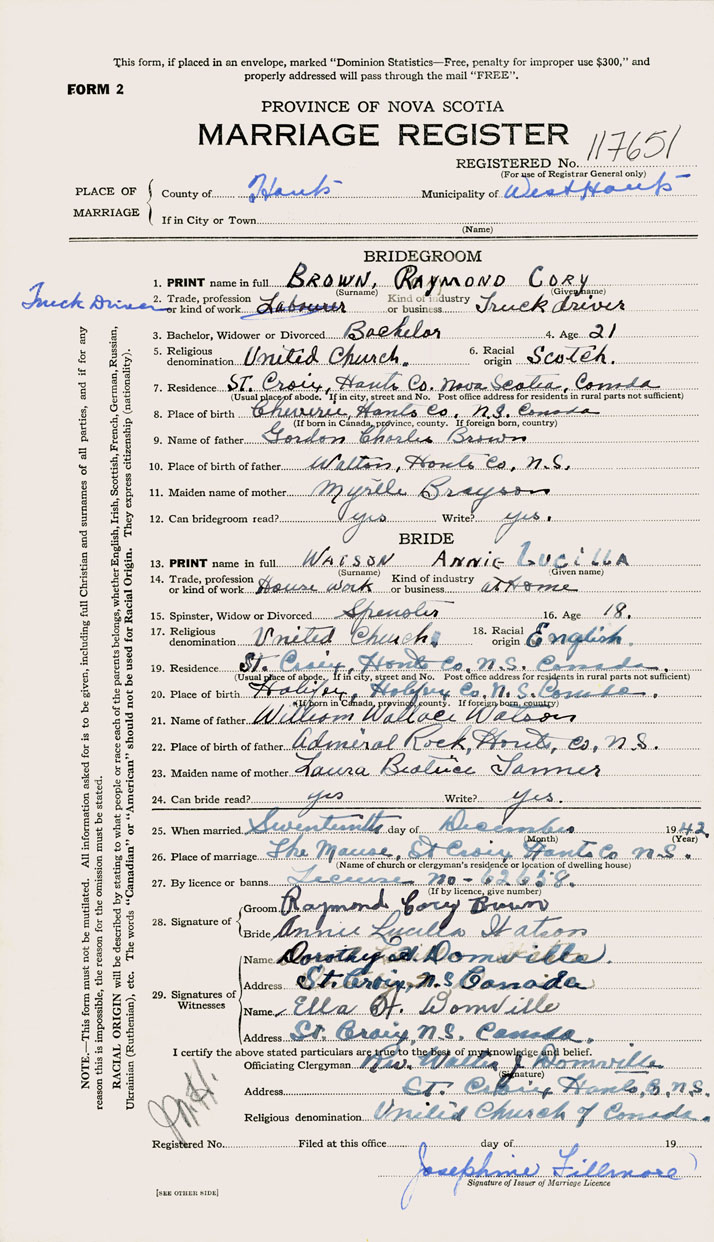 This form, if placed in an envelope, marked "Dominion Statistics—Free, penalty for improper use $300," and
properly addressed will pass through the mail "FREE".
FORM 2
PROVINCE OF NOVA SCOTIA
MARRIAGE REGISTER
REGISTERED No. 117651
(For use of Registrar General only)
PLACE OF MARRIAGE
County of Hants Municipality of West Hants
If in City or Town
(Name)
BRIDEGROOM
1. PRINT name in full BROWN, RAYMOND CORY
(Surname) (Given name)
Truck Driver
2. Trade, profession or kind of work Labourer Kind of industry or business Truck driver
3. Bachelor, Widower or Divorced Bachelor 4. Age 21
5. Religious denomination United Church. 6. Racial origin Scotch.
7. Residence ST. Croix, Hants Co. Nova Scotia, Canada
(Usual place of abode. If in city, street and No. Post office address for residents in rural parts not sufficient)
8. Place of birth Cheverie, Hants Co, N.S. Canada
(If born in Canada, province, county. If foreign born, country)
9. Name of father Gordon Charles Brown
10. Place of birth of father Walton, Hants Co, N.S.
11. Maiden name of mother Myrtle Brayson
12. Can bridegroom read? yes Write? yes.
BRIDE
13. PRINT name in full WATSON ANNIE LUCILLA
(Surname) (Given name)
14. Trade, profession or kind of work House work Kind of industry or business at Home
15. Spinster, Widow or Divorced Spenster 16. Age 18.
17. Religious denomination United Church. 18. Racial origin English.
19. Residence St. Croix, Hants Co, N.S. Canada.
(Usual place of abode. If in city, street and No. Post office address for residents in rural parts not sufficient)
20. Place of birth Halifax, Halifax Co. N.S. Canada.
(If born in Canada, province, county. If foreign born, country)
21. Name of father William Wallace Watson
22. Place of birth of father Admiral Rock, Hants, Co, N.S.
23. Maiden name of mother Laura Beatrice Tanner
24. Can bride read? yes Write? yes.
25. When married day of December 1942
(Month) (Year)
26. Place of marriage The Manse, St Croix, Hants Co N.S.
(Name of church or clergyman's residence or location of dwelling house)
27. By licence or banns License no - 62658.
(If by licence, give number)
28. Signature of
Groom Raymond Cory Brown
Bride Annie Lucilla Watson
29. Signatures of Witnesses
Name Dorothy Domville.
Address St. Croix, N.S. Canada
Name Ella H. Domville
Address St. Croix, N.S. Canada.
I certify the above stated particulars are true to the best of my knowledge and belief.
Officiating Clergyman Rev. Walter J. Domville
(Signature)
Address St. Croix Hants, N.S.
Religious denomination United Church of Canada.
Registered No. Filed at this office day of 19
Josephine Fillmore
Signature of Issuer of Marriage Licence
[SEE OTHER SIDE]
NOTE.—This form must not be mutilated. All information asked for is to be given, including full Christian and surnames of all parties, and if for any
reason this is impossible, the reason for the omission must be stated.
RACIAL ORIGIN will be described by stating to what people or race each of the parents belongs, whether English, Irish, Scottish, French, German, Russian,
Ukrainian (Ruthenian), etc. The words "Canadian" or "American" should not be used for Racial Origin. They express citizenship (nationality).